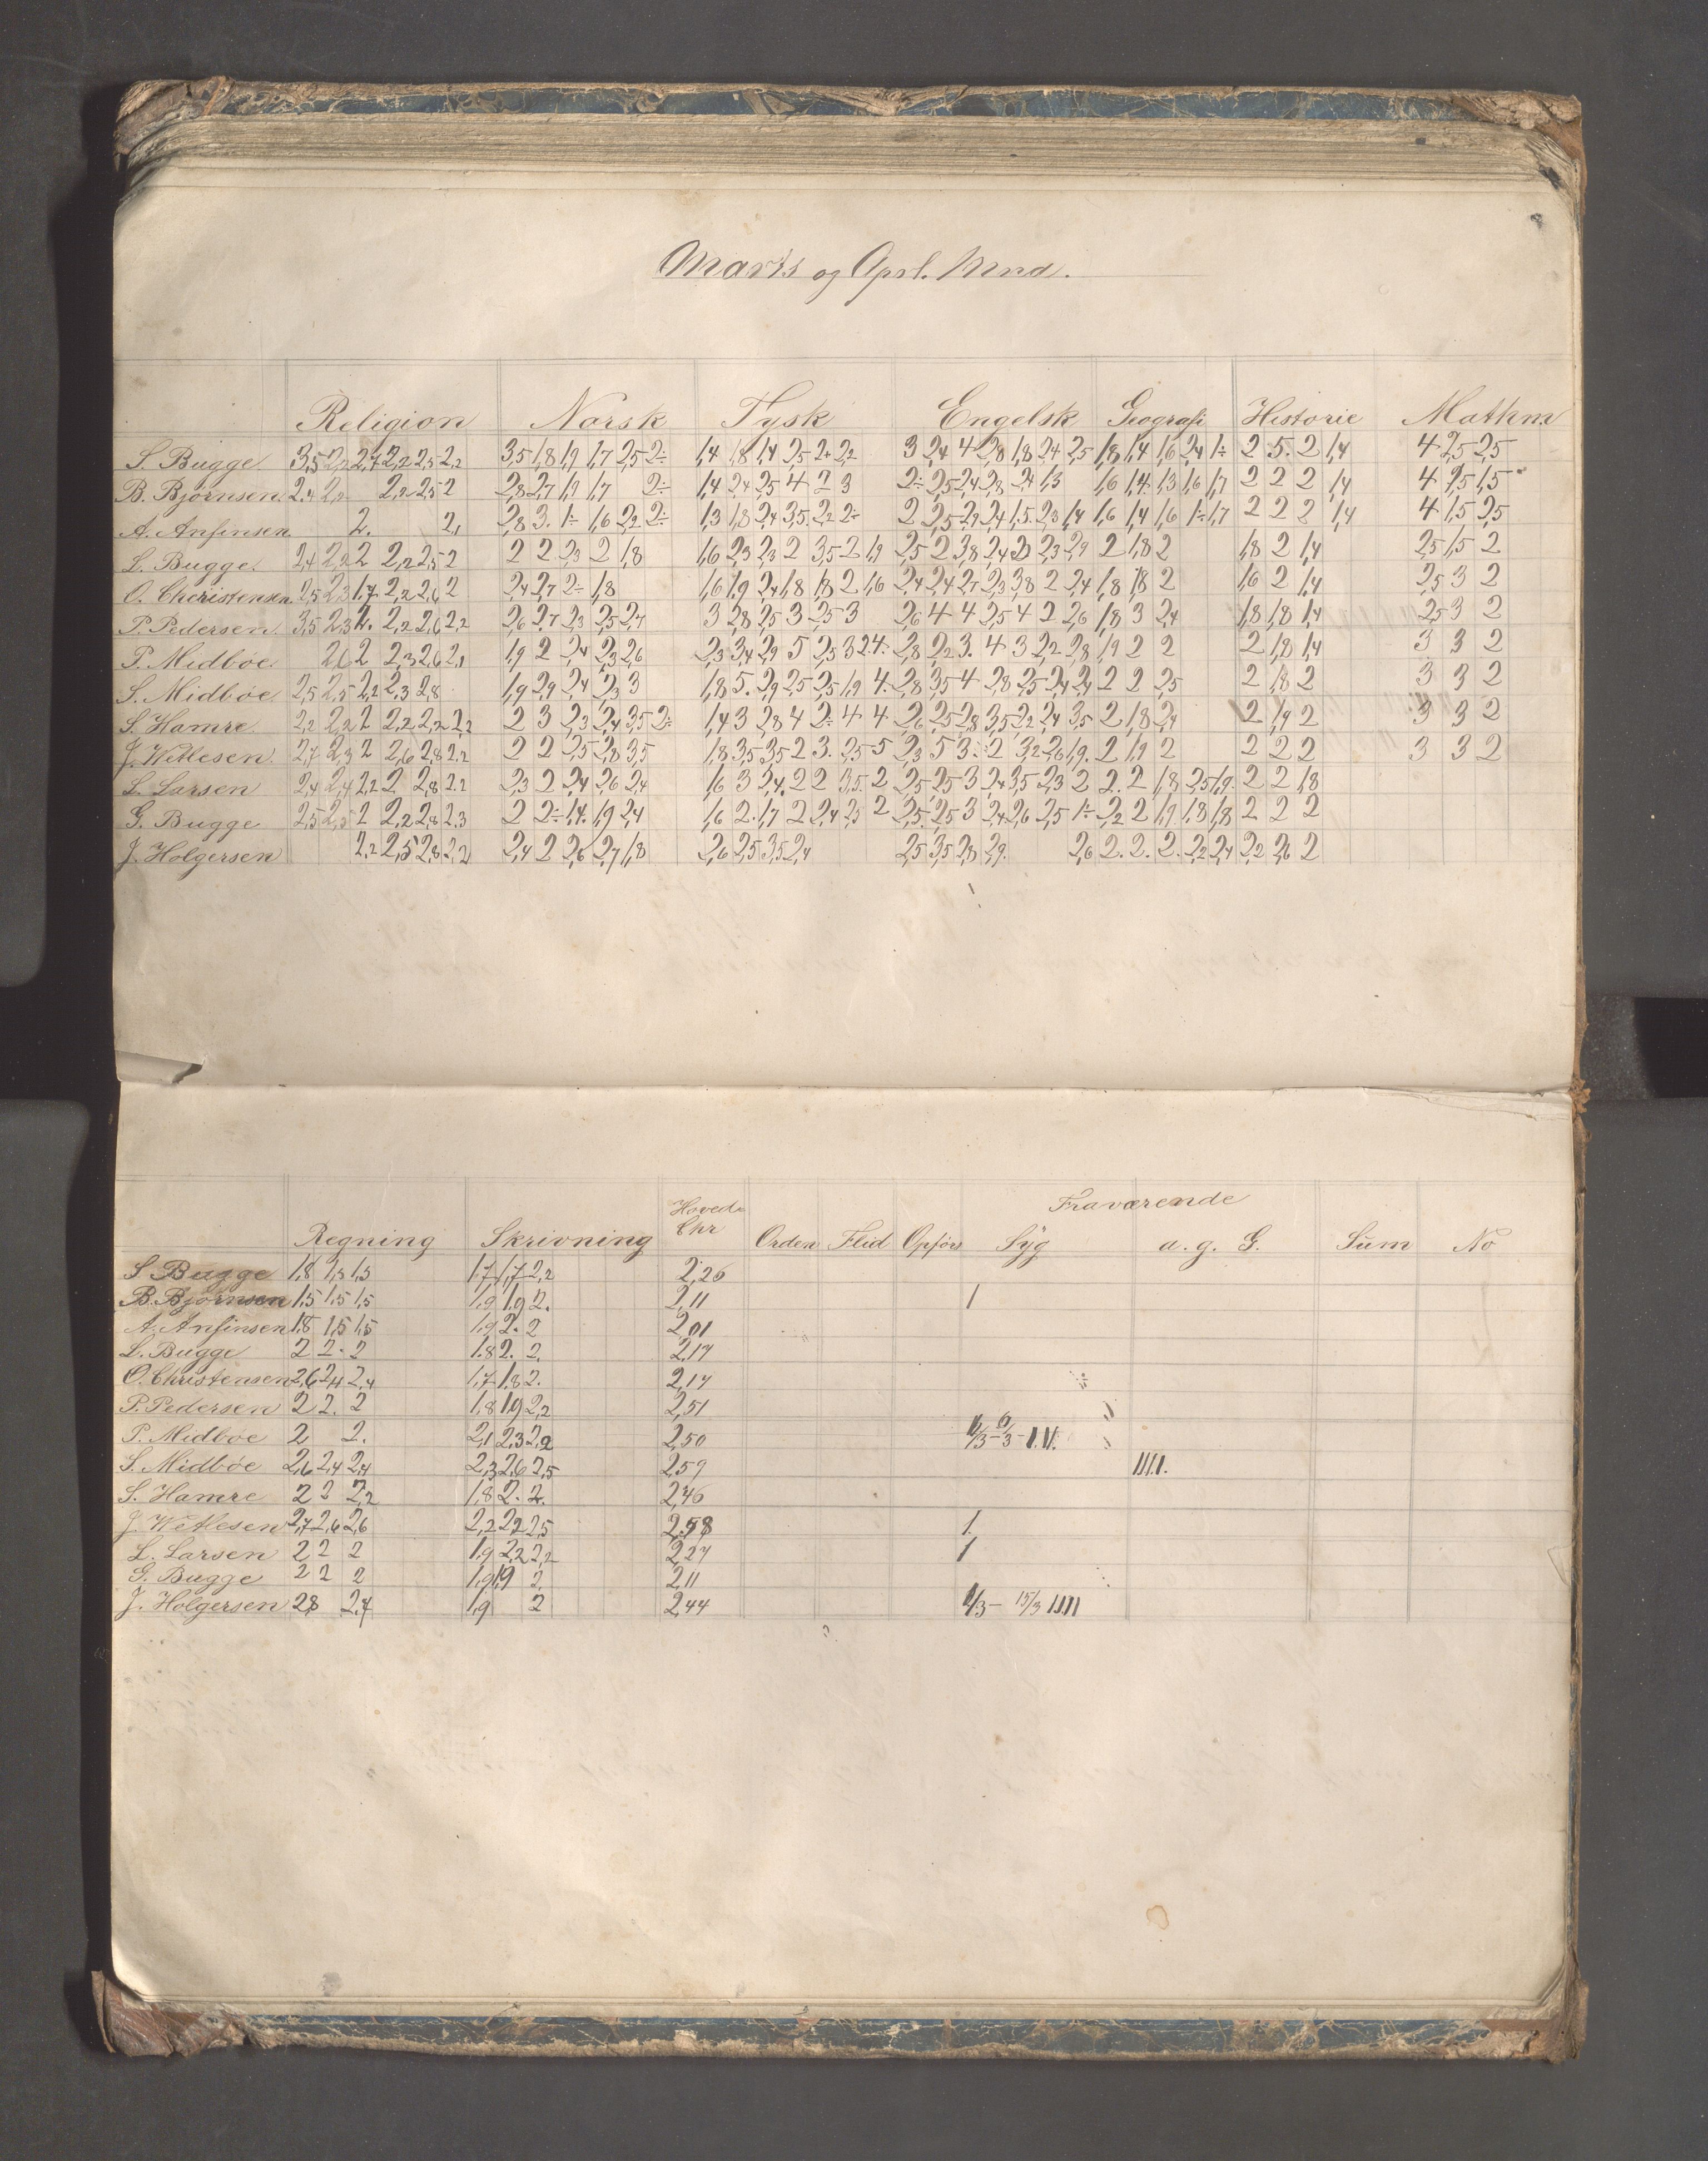 Marts og Aprl. Mnd.
Religion Norsk Tysk Engelsk Geografi Historie Mathm.
S. Bugge. 3,5 2,2 2,4 2,2 2,5 2,2 3,5 1,8 1,9 1,7 2,5 2÷ 1,4 1,8 1,4 2,5 2,4 2,2 3 2,4 4 2,8 1,8 2,4 2,5 1,8 1,4 1,6 2,4 1÷ 2 5. 2 1,4 4 2,5 2,5
B. Bjørnsen. 2,4 2,2 2,2 2,5 2 2,8 2,7 1,9 1,7 2÷ 1,4 2,4 2,5 4 2 3 2÷ 2,5 2,4 2,8 2,4 1,3 1,6 1,4. 1,3 1,6 1,7 2 2 2 1,4 4 1,5 1,5
A. Anfinsen 2. 2,1 2,8 3. 1÷ 1,6 2,2 2÷ 1,3 1,8 2,4 3,5. 2,2 2÷ 2 2,5 2,9 2,4 1,5. 2,3 1,4 1,6 1,4 1,6 1÷ 1,7 2 2 2 1,4 4 1,5 2,5
L. Bugge. 2,4 2,2 2 2,2 2,5 2 2 2 2,3 2 1,8 1,6 2,3 2,3 2 3,5 2 1,9 2,5 2 3,8 2,4 2 2,3 2,9 2 1,8 2 1,8 2 1,4 2,5 1,5 2
O. Christensen. 2,5 2,3 1,7 2,2 2,6 2 2,4 2,7 2÷ 1,8 1,6 1,9 2,4 1,8 1,8 2 1,6 2,4 2,4 2,7 2,3 3,8 2 2,4 1,8 1,8 2 1,6 2 1,4 2,5 3 2
P. Pedersen. 3,5 2,3 2. 2,2 2,6 2,2 2,6 2,7 2,3 2,5 2,7 3 2,8 2,5 3 2,5 3 2,6 4 4 2,5 4 2 2,6 1,8 3 2,4 1,8 1,8 1,4 2,5 3 2
P. Midbøe. 2,6 2 2,3 2,6 2,1 1,9 2 2,4 2,3 2,6 2,3 3,4 2,9 5 2,5 3 2,4. 2,8 2,2 3. 4 3 2,2 2,8 1,9 2 2 2 1,8 1,4 3 3 2
S. Midbøe. 2,5 2,5 2,2 2,3 2,8 1,9 2,9 2,4 2,3 3 1,8 5. 2,9 2,5 2,5 1,9 4. 2,8 3,5 4 2,8 2,5 2,4 2,4 2 2 2,5 2 1,8 2 3 3 2
S. Hamre 2,2 2,2 2 2,2 2,2 2,2 2 3 2,3 2,4 3,5 2÷ 1,4 3 2,8 4 2÷ 4 4 2,6 2,5 2,8 3,5 2,2 2,4 3,5 2 1,8 2,4 2 1,9 2 3 3 2
J. Wetlesen. 2,7 2,3 2 2,6 2,8 2,2 2 2 2,5 2,8 3,5 1,8 3,5 3,5 2 3. 2,5 5 2,3 5 3. 2 3,2 2,6 1,9. 2 1,9 2 2 2 2 3 3 2
L. Larsen 2,4 2,4 2,2 2 2,8 2,2 2,3 2 2,4 2,6 2,4 1,6 3 2,4. 2 2 3,5. 2 2,5 2,5 3 2,4 3,5 2,3 2 2. 2 1,8 2,5 1,9. 2 2 1,8
G. Bugge 2,5 2,5 2 2,2 2,8 2,3 2 2÷ 1,4. 1,9 2,4 1,6 2. 1,7 2 2,4 2,3 2 2,5. 2,5 3 2,4 2,6 2,5 1÷ 2,2 2 1,9 1,8 1,8 2 2 2
J. Holgersen 2,2 2,5 2,8 2,2 2,4 2 2,6 2,7 1,8 2,6 2,5 3,5 2,4 2,5 3,5 2,8 2,9. 2,6 2. 2. 2. 2,2 2,4 2,2 2,6 2
Fraværende
Regning Skrivning Hoved Chr Orden Flid Opførs Syg a. g. G. Sum No
S Bugge 1,8 1,5 1,5 1,7 1,7 2,2 2,26
B. Bjørnsen 1,5 1,5 1,5 1,9 1,9 2. 2,11 1
A. Anfinsen 1,8 1,5 1,5 1,9 2. 2 2,01
L. Bugge 2 2. 2 1.8 2. 2. 2,17
O. Christensen 2,6 2,4 2,4 1,7 1,8 2. 2,17
P. Pedersen 2 2. 2 1.8 1.9 2,2 2,51
P. Midbøe 2 2. 2,1 2,3 2,2 2,50
S. Midbøe 2,6 2,4 2,4 2,3 2,6 2,5 2,59 IIII.
S. Hamre 2 2 2,2 1,8 2. 2. 2,46
J. Wetlesen 2,7 2,6 2,6 2,2 2,2 2,5 2,58 1.
L. Larsen 2 2 2 1,9 2,2 2,2 2,27 1
G. Bugge 2 2 2 1,9 1,9 2. 2,11
J. Holgersen 2,8 2,4 1,9 2 2,44 1/3 – 15/3 IIIII